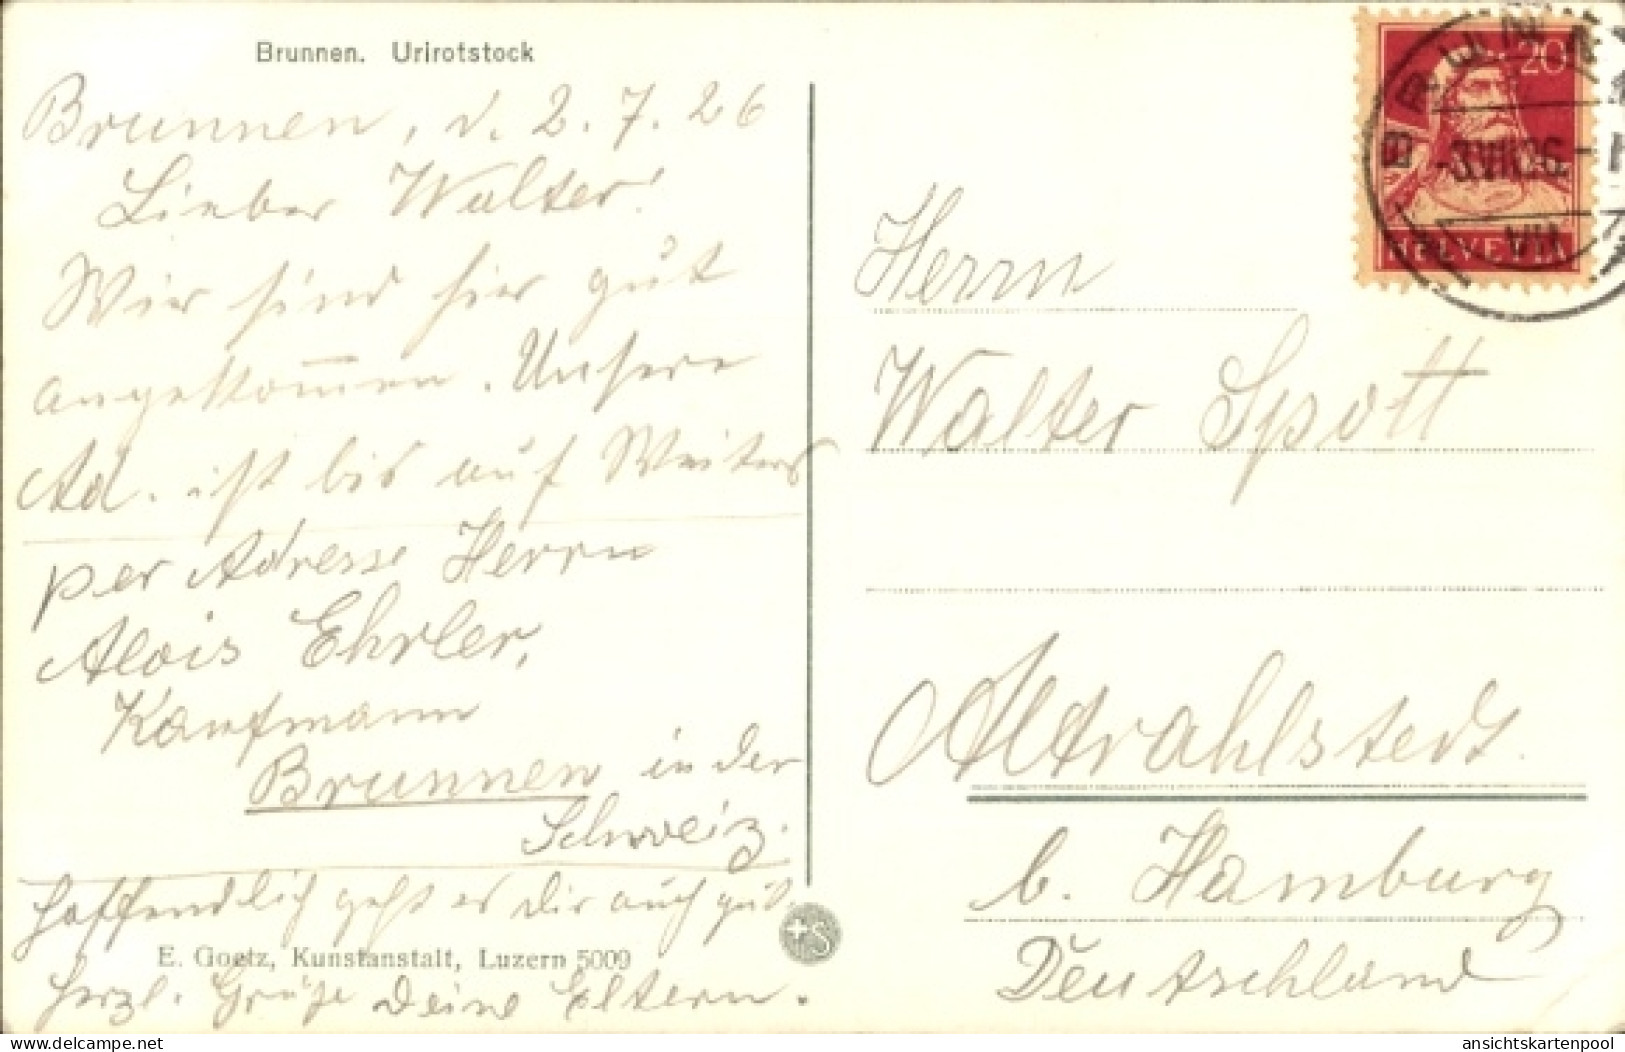 Brunnen. Urirotstock
Brunnen, d. 2.7.26
Lieber Walter!
Wir sind hier gut
angekommen. Unsere
Ad. ist bis auf Weiteres
per Adresse Herrn
Alois Ehrler,
Kaufmann
Brunnen in der
Schweiz.
Hoffendlich geht es Dir auch gut.
E. Goetz, Kunstanstalt, Luzern 5009
Herzl. Grüße Deine Eltern.
20
BRUNNEN
-3.VII.26.-
VII
HELVETIA
Herrn
Walter Spott
Altrahlstedt.
b. Hamburg
Deutschland
delcampe.net
ansichtskartenpool